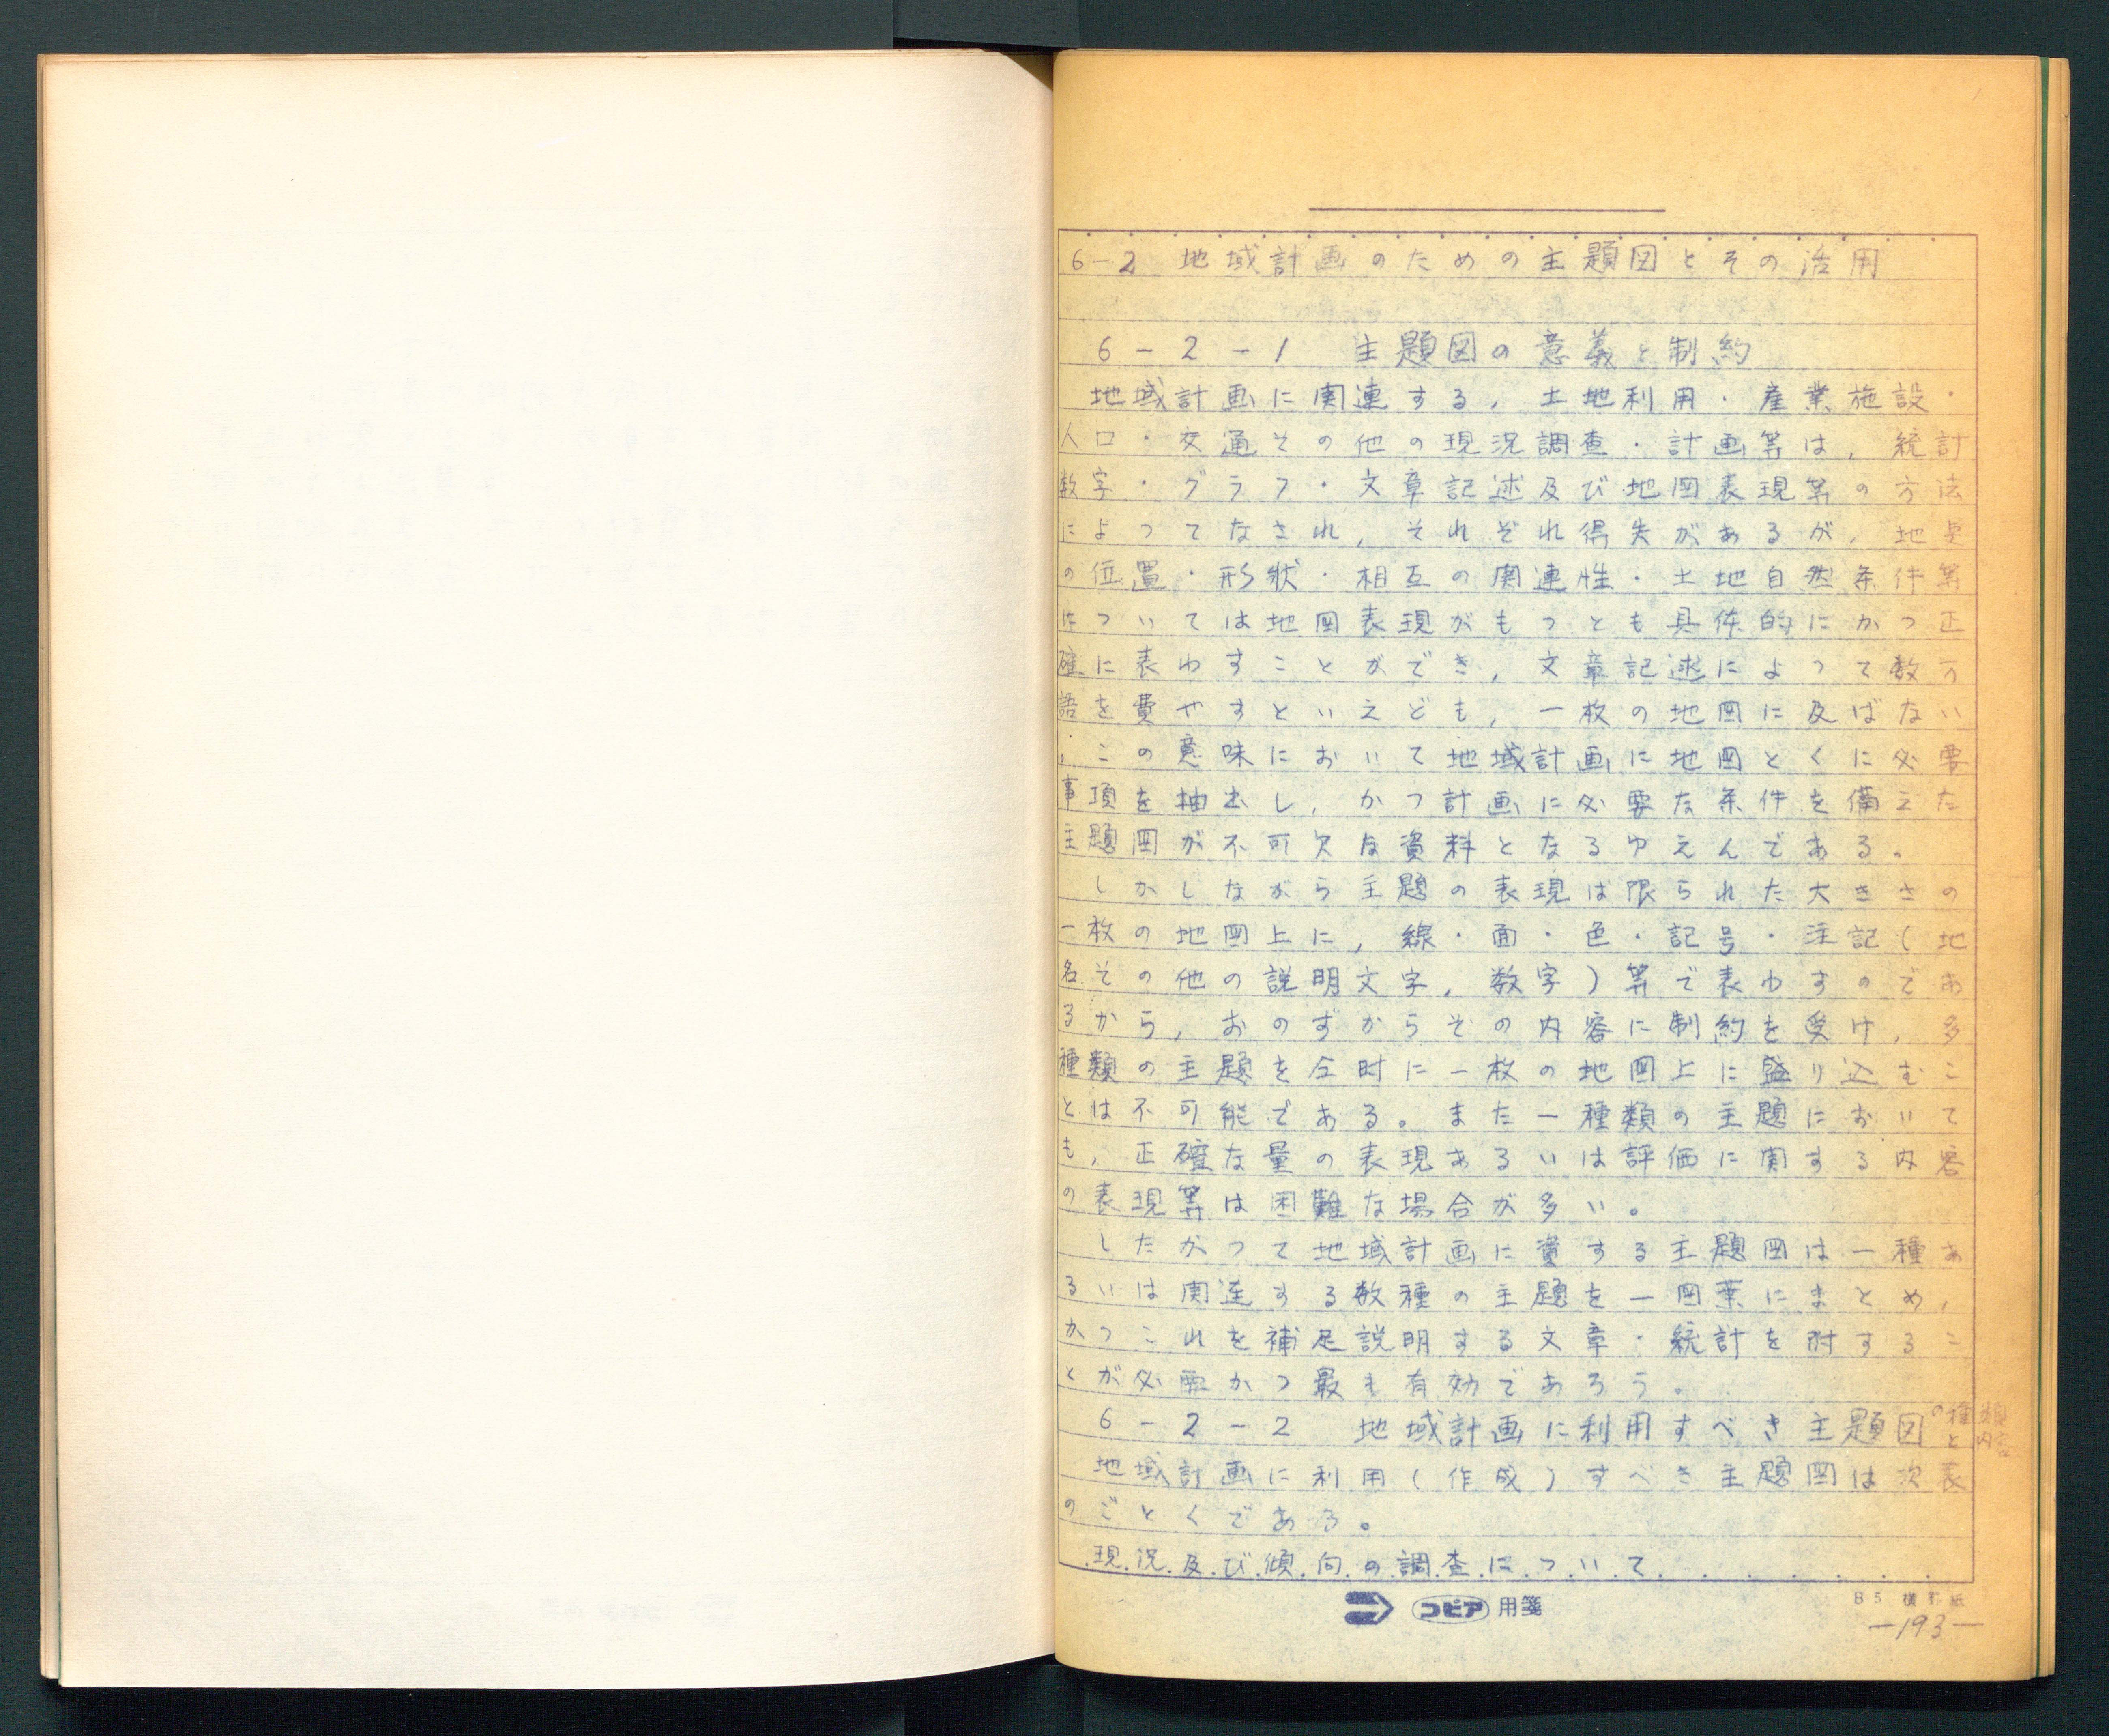 6-2 地域計画のための主題図とその活用
6-2-1 主題図の意義と制約
地域計画に関連する，土地利用・産業施設・
人口・交通その他の現況調査・計画等は，統計
数字・グラフ・文章記述及び地図表現等の方法
によつてなされ，それぞれ得失があるが，地点
の位置・形状・相互の関連性・土地自然条件等
については地図表現がもつとも具体的にかつ正
確に表わすことができ，文章記述によつて数万
語を費やすといえども，一枚の地図に及ばない
。この意味において地域計画に地図とくに必要
事項を抽出し，かつ計画に必要な条件を備えた
主題図が不可欠な資料となるゆえんである。
しかしながら主題の表現は限られた大きさの
一枚の地図上に，線・面・色・記号・注記（地
名その他の説明文字，数字）等で表わすのであ
るから，おのずからその内容に制約を受け，多
種類の主題を仝時に一枚の地図上に盛り込むこ
とは不可能である。また一種類の主題において
も，正確な量の表現あるいは評価に関する内容
の表現等は困難な場合が多い。
したがつて地域計画に資する主題図は一種あ
るいは関連する数種の主題を一図葉にまとめ，
かつこれを補足説明する文章・統計を附するこ
とが必要かつ最も有効であろう。
6-2-2 地域計画に利用すべき主題図の種類と内容
地域計画に利用（作成）すべき主題図は次表
のごとくである。
現況及び傾向の調査について
コピア用箋
B5 横罫紙
—193—